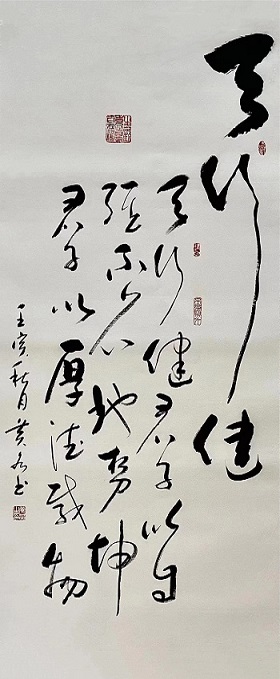 天行健
天行健君子以自
强不息地势坤
君子以厚德载物
壬寅秋月黄书